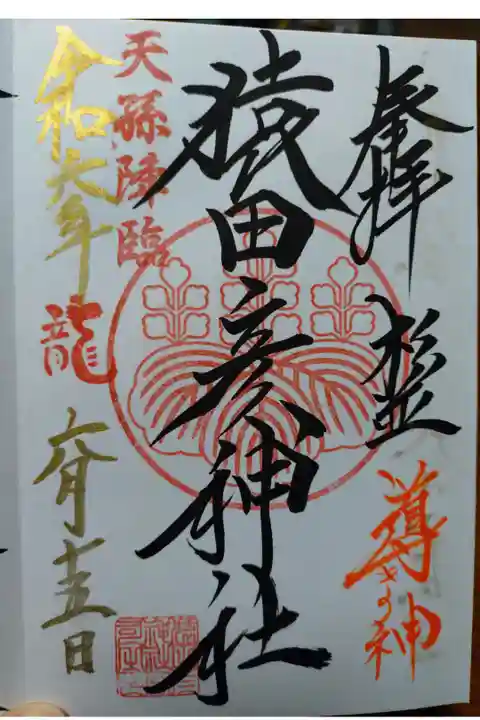 奉拝 杉並
導きの神
猿田彦神社
天孫降臨
令和六年 龍
六月十五日